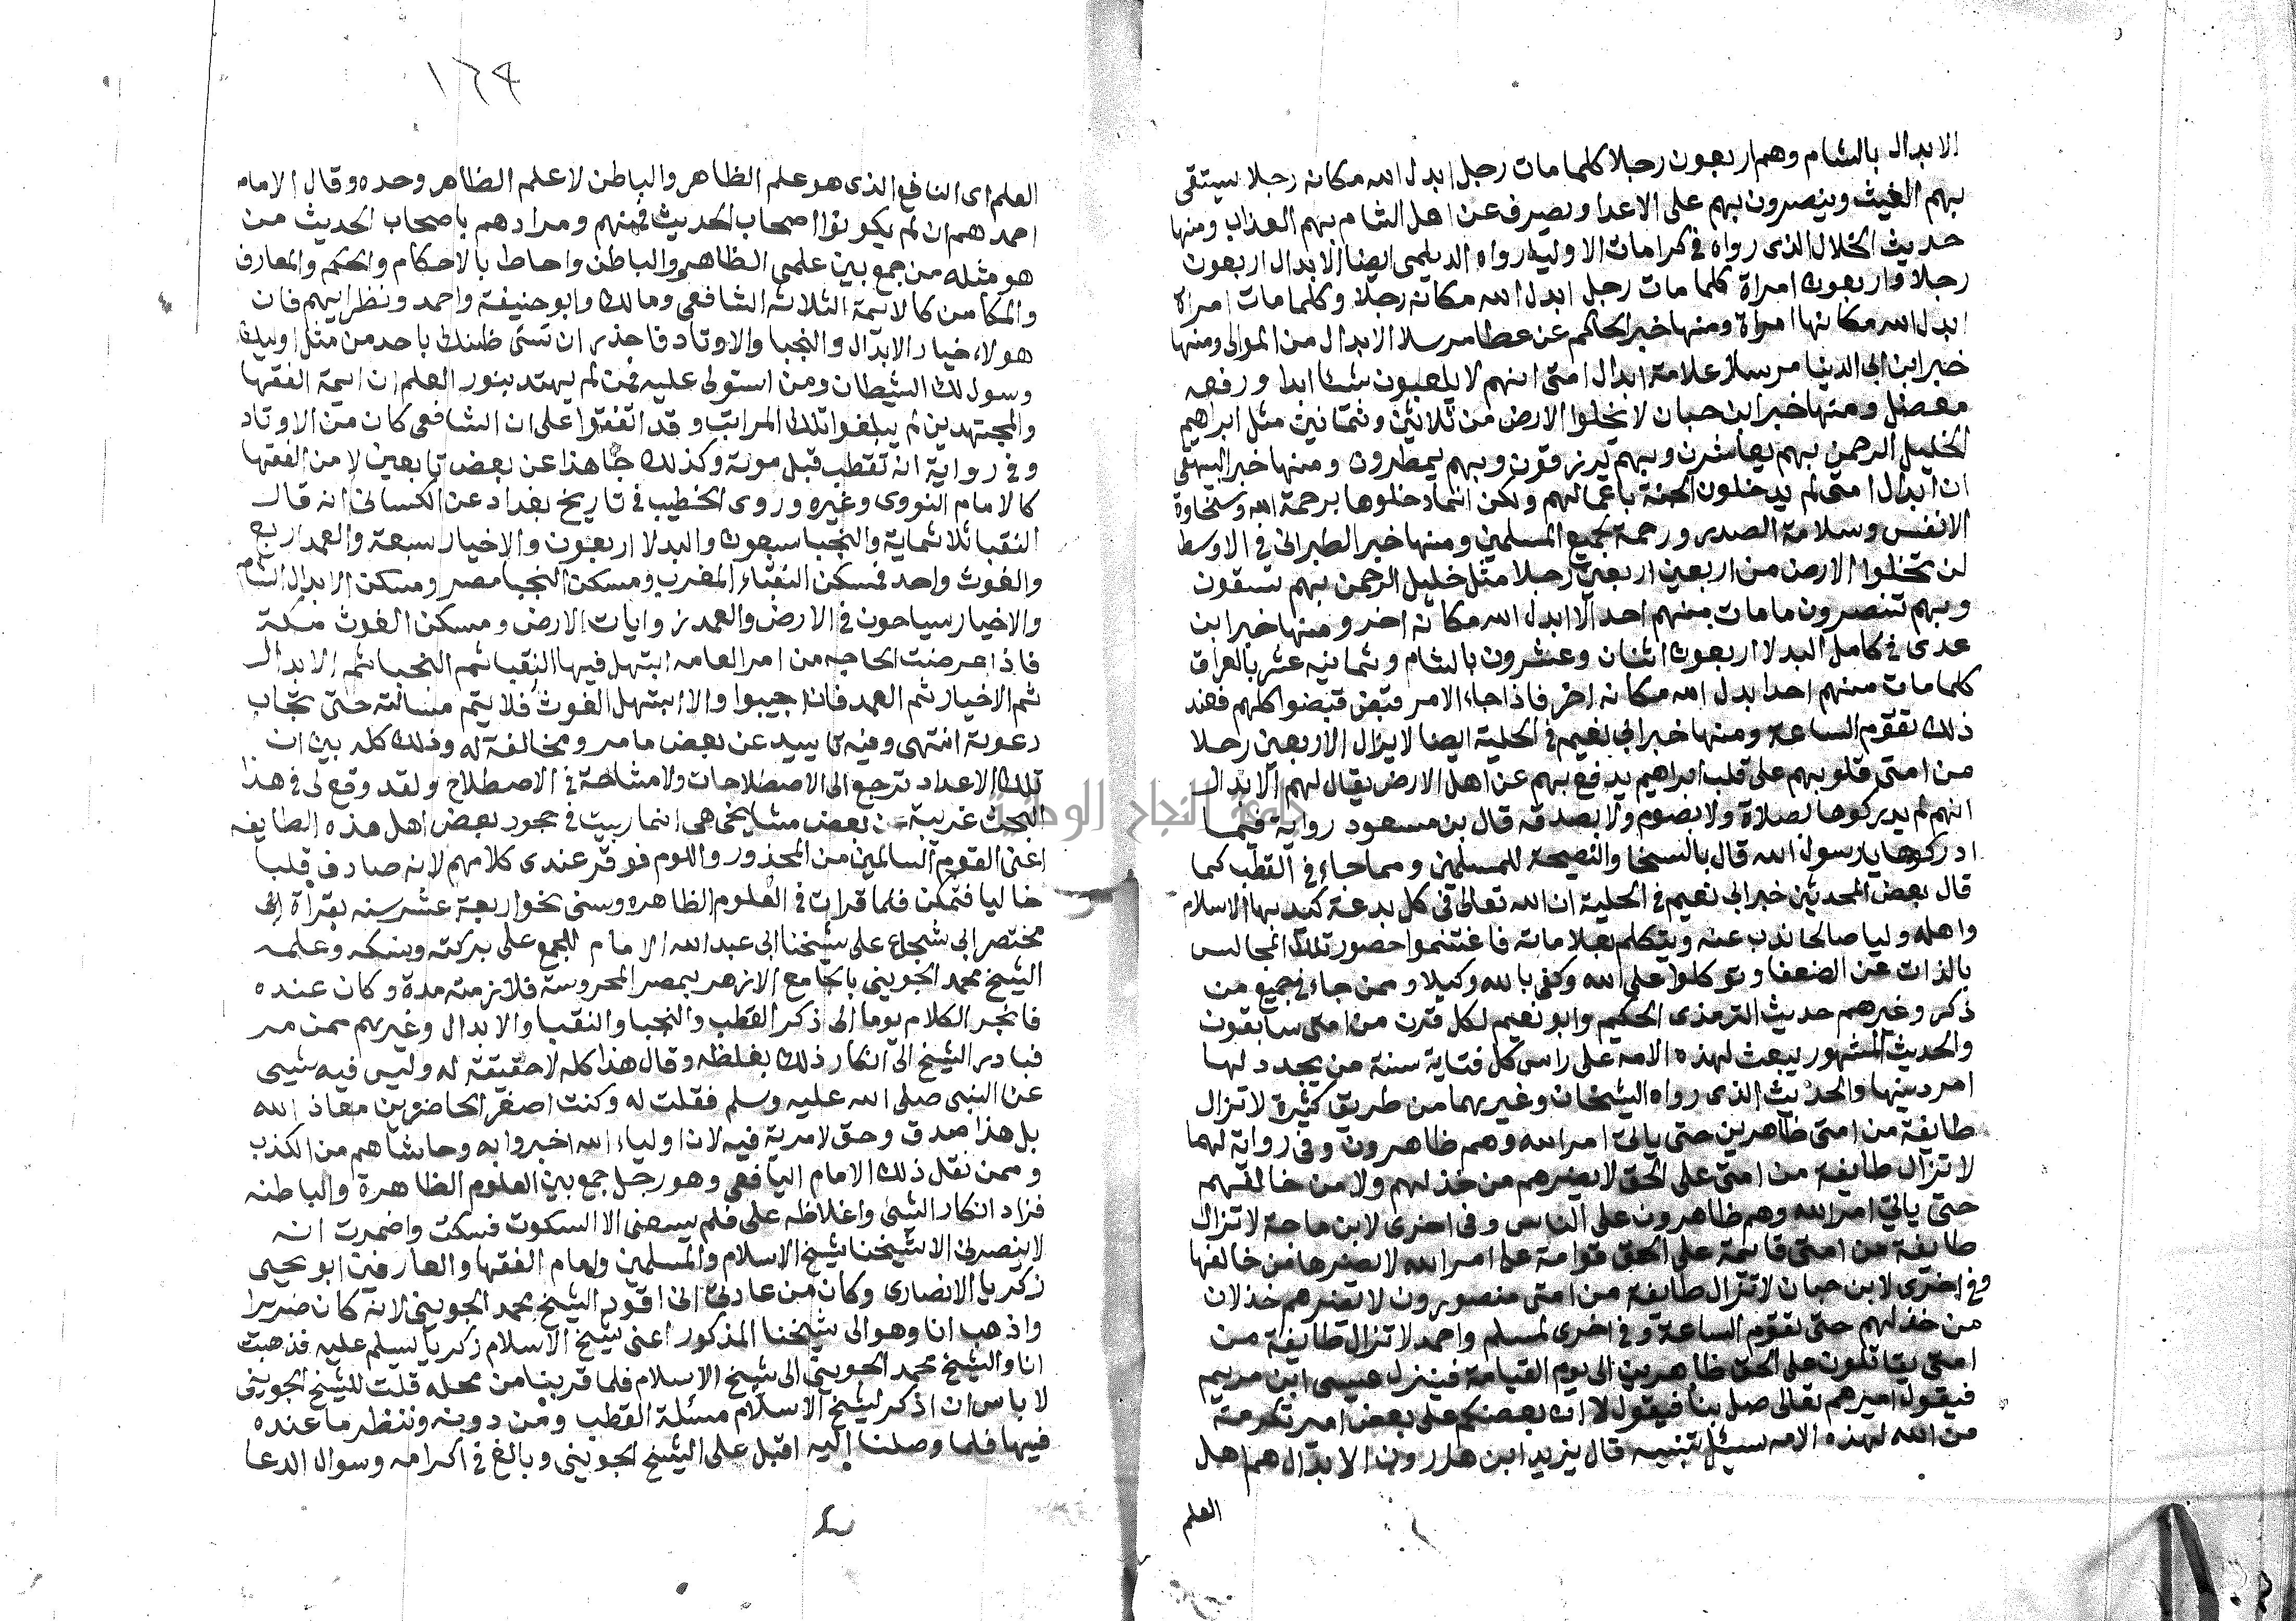 الابدال بالشام وهم اربعون رجلا كلما مات رجل ابدل الله مكانه رجلا يستقى
بهم الغيث وينصرون بهم على الاعدا ويصرف عن اهل الشام بهم العذاب ومنها
حديث الخلال الذى رواه فى كرامات الاوليا ورواه الديلمى ايضا الابدال اربعون
رجلا واربعون امراة كلما مات رجل ابدل الله مكانه رجلا وكلما مات امراة
ابدل الله مكانها امراة ومنها خبر الحاكم عن عطا مرسلا الابدال من الموالى ومنها
خبر ابن ابى الدنيا مرسلا علامة ابدال امتى انهم لا يلعنون شيئا ابدا ورفعه
معضل ومنها خبر ابن حبان لا تخلوا الارض من ثلاثين وثمانين مثل ابراهيم
الخليل الرحمن بهم يغاثون وبهم يرزقون وبهم يمطرون ومنها خبر البيهقى
ان ابدال امتى لم يدخلون الجنة باعمالهم ولكن انما دخلوها برحمة الله وسخاوة
الانفس وسلامة الصدر ورحمة لجميع المسلمين ومنها خبر الطبرانى فى الاوسط
لن تخلوا الارض من اربعين اربعين رجلا مثل خليل الرحمن بهم تسقون
وبهم تنصرون ما مات منهم احد الا ابدل الله مكانه اخر ومنها خبر ابن
عدى فى كامل البدلا اربعون اثنان وعشرون بالشام وثمانيه عشر بالعراق
كلما مات منهم احد ابدل الله مكانه اخر فاذا جاء الامر قبض قبضوا كلهم فعند
ذلك تقوم الساعة ومنها خبر ابى نعيم فى الحلية ايضا لا يزال الاربعين رجلا
من امتى قلوبهم على قلب ابراهيم يدفع بهم عن اهل الارض يقال لهم الابدال
انهم لم يدركوها لصلاة ولا بصوم ولا بصدقه قال بن مسعود رواية فيما
ادركوها يارسول الله قال بالسخا والنصيحة للمسلمين ومما جاء فى القطب كما
قال بعض المحدثين خبر ابى نعيم فى الحلية ان الله تعالى فى كل بدعة كيد بها الاسلام
واهله وليا صالحا يذب عنه ويتكلم بعلاماته فاغتنموا حضور تلك المجالس
بالذات عن الضعفا وتوكلوا على الله وكفى بالله وكيلا وممن جاء فى جميع من
ذكر وغيرهم حديث الترمذى الحكيم وابو نعيم لكل قرن من امتى سابقون
والحديث المشهور يبعث لهذه الامة على راس كل سنة من يجدد لها
امر دينها والحديث الذى رواه الشيخان وغيرهما من طريق كثيرة لا تزال
طايفة من امتى ظاهرين حتى ياتى امر الله وهم ظاهرون وفى رواية لهما
لا تزال طايفة من امتى على الحق لا يضرهم من خذلهم ولا من خالفهم
حتى ياتى امر الله وهم ظاهرون على الناس وفى اخرى لابن ماجة لا تزال
طايفة من امتى قايمة على الحق قوامة على امر الله لا يضرها من خالفها
وفى اخرى لابن حبان لا تزال طايفة من امتى منصورون لا يضرهم خذلان
من خذلهم حتى تقوم الساعة وفى اخرى لمسلم واحمد لا تزال طايفة من
امتى يقاتلون على الحق ظاهرين الى يوم القيامة فينزل عيسى ابن مريم
فيقول اميرهم تعالى صل بنا فيقول لا ان بعضكم على بعض امير تكرمة
من الله لهذه الامه تنبيه قال يزيد ابن هارون الابدال هم اهل
العلم
١٦٩
العلم اى النافع الذى هو علم الظاهر والباطن لا علم الظاهر وحده وقال الامام
احمد هم ان لم يكونوا اصحاب الحديث فمنهم ومرادهم باصحاب الحديث من
هو مثله من جمع بين علمى الظاهر والباطن واحاط بالاحكام والحكم والمعارف
والمكامن كالائمة الثلاثة الشافعى ومالك وابو حنيفة واحمد ونظرايهم فان
هولاء خيار الابدال والنجبا والاوتاد فاحذر ان تسئ ظنك باحد من مثل اوليك
وسول لك الشيطان ومن استولى عليه فمن لم يهتد بنور العلم ان ايمة الفقها
والمجتهدين لم يبلغوا تلك المراتب وقد اتفقوا على ان الشافعى كان من الاوتاد
وفى رواية انه تقطب قبل موته وكذلك جا هذا عن بعض تابعين لا من الفقها
كالامام النووى وغيره وروى الخطيب فى تاريخ بغداد عن الكسانى انه قال
النقبا ثلاثماية والنجبا سبعون والبدلا اربعون والاخيار سبعة والعمد اربع
والغوث واحد فمسكن النقباء المغرب ومسكن النجبا مصر ومسكن الابدال الشام
والاخيار سياحون فى الارض والعمد زوايات الارض ومسكن الغوث مكة
فاذا عرضت الحاجه من امر العامه ابتهل فيها النقبا ثم النجبا ثم الابدال
ثم الاخيار ثم العمد فان اجيبوا والا ابتهل الغوث فلا يتم مسالته حتى تجاب
دعوته انتهى وفيه تاييد عن بعض ما مر ومخالفة له وذلك كله بين ان
تلك الاعداد ترجع الى الاصطلاحات ولا مشاحة فى الاصطلاح ولقد وقع لى فى هذا
البحث غريبة من بعض مشايخى هى انما ربيت فى حجور بعض اهل هذه الطايفه
اعنى القوم السالمين من المحذور واللوم فوقر عندى كلامهم لانه صادف قلبا
خاليا فتمكن فلما قرات فى العلوم الظاهره وسنى نحو اربعة عشر سنه بقرأة
مختصر ابى شجاع على شيخنا ابى عبد الله الامام المجمع على بركته ونسكه وعلمه
الشيخ محمد الجوينى بالجامع الازهر بمصر المحروسة فلازمته مدة وكان عنده
فانجر الكلام يوما الى ذكر القطب والنجبا والنقبا والابدال وغيرهم ممن مر
فبادر الشيخ الى انكار ذلك بغلظه وقال هذا كله لا حقيقة له وليس فيه شيى
عن النبى صلى الله عليه وسلم فقلت له وكنت اصغر الحاضرين معاذ الله
بل هذا صدق وحق لامرية فيه لان اولياء الله اخبروا به وحاشاهم من الكذب
وممن نقل ذلك الامام اليافعى وهو رجل جمع بين العلوم الظاهرة والباطنه
فزاد انكار الشيخ واغلاظه على فلم يسعنى الا السكوت فسكت واضمرت انه
لا ينصرنى الا شيخنا شيخ الاسلام والمسلمين وامام الفقها والعارفين ابو يحيى
زكريا الانصارى وكان من عادتى انى اقود الشيخ محمد الجوينى لانه كان ضريرا
واذهب انا وهو الى شيخنا المذكور اعنى شيخ الاسلام زكريا يسلم عليه فذهبت
انا والشيخ محمد الجوينى الى شيخ الاسلام فلما قربنا من محله قلت للشيخ الجوينى
لا باس ان اذكر لشيخ الاسلام مسئلة القطب ومن دونه وننظر ما عنده
فيها فلما وصلنا اليه اقبل على الشيخ الجوينى وبالغ فى اكرامه وسوال الدعا
جامعة النجاح الوطنية